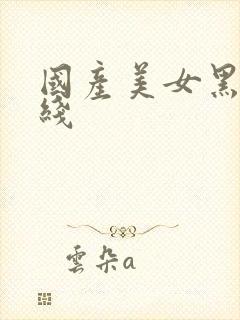 國產美女黑
綫
雲朵a